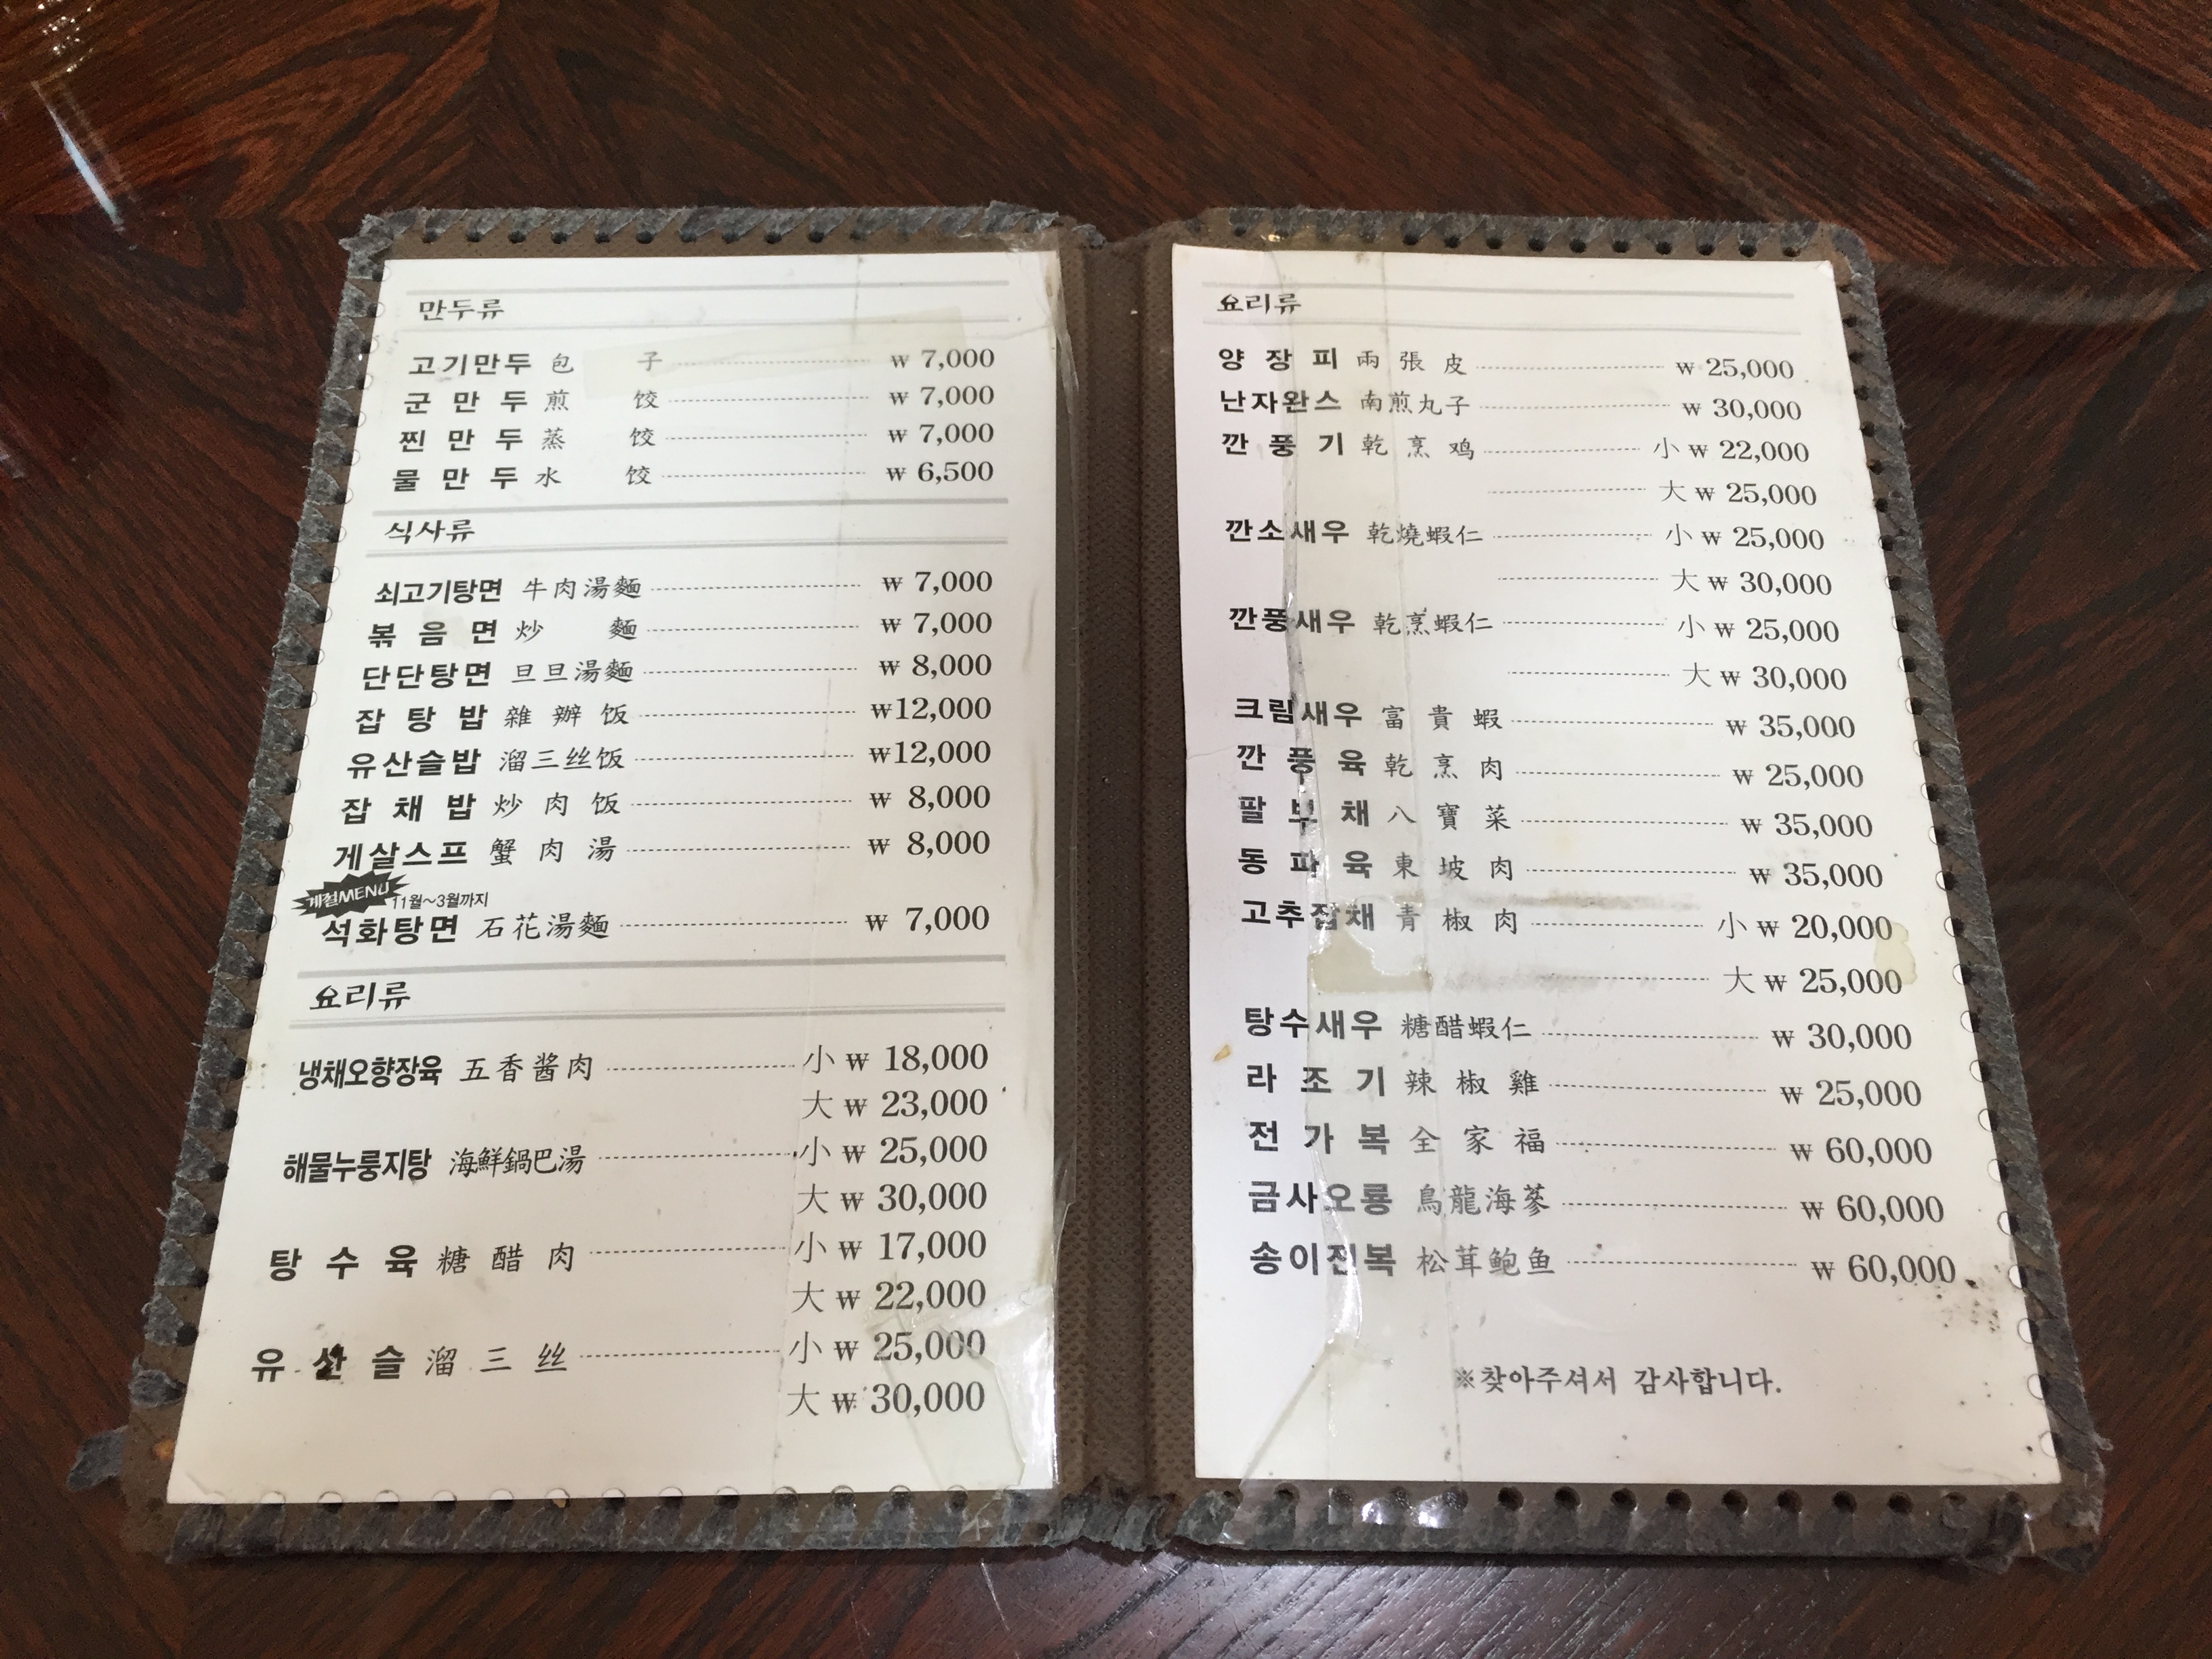 만두류
고기만두 包 子 ₩ 7,000
군만두 煎 饺 ₩ 7,000
찐만두 蒸 饺 ₩ 7,000
물만두 水 饺 ₩ 6,500
식사류
쇠고기탕면 牛肉湯麵 ₩ 7,000
볶음면 炒 麵 ₩ 7,000
단단탕면 旦旦湯麵 ₩ 8,000
잡탕밥 雜辦饭 ₩12,000
유산슬밥 溜三丝饭 ₩12,000
잡채밥 炒肉饭 ₩ 8,000
게살스프 蟹肉湯 ₩ 8,000
계절MENU 11월~3월까지
석화탕면 石花湯麵 ₩ 7,000
요리류
냉채오향장육 五香酱肉 小 ₩ 18,000
大 ₩ 23,000
해물누룽지탕 海鮮鍋巴湯 小 ₩ 25,000
大 ₩ 30,000
탕수육 糖醋肉 小 ₩ 17,000
大 ₩ 22,000
유산슬 溜三丝 小 ₩ 25,000
大 ₩ 30,000
요리류
양장피 兩張皮 ₩ 25,000
난자완스 南煎丸子 ₩ 30,000
깐풍기 乾烹鸡 小 ₩ 22,000
大 ₩ 25,000
깐소새우 乾燒蝦仁 小 ₩ 25,000
大 ₩ 30,000
깐풍새우 乾烹蝦仁 小 ₩ 25,000
大 ₩ 30,000
크림새우 富貴蝦 ₩ 35,000
깐풍육 乾烹肉 ₩ 25,000
팔보채 八寶菜 ₩ 35,000
동파육 東坡肉 ₩ 35,000
고추잡채 青椒肉 小 ₩ 20,000
大 ₩ 25,000
탕수새우 糖醋蝦仁 ₩ 30,000
라조기 辣椒雞 ₩ 25,000
전가복 全家福 ₩ 60,000
금사오룡 烏龍海蔘 ₩ 60,000
송이전복 松茸鲍鱼 ₩ 60,000
※찾아주셔서 감사합니다.